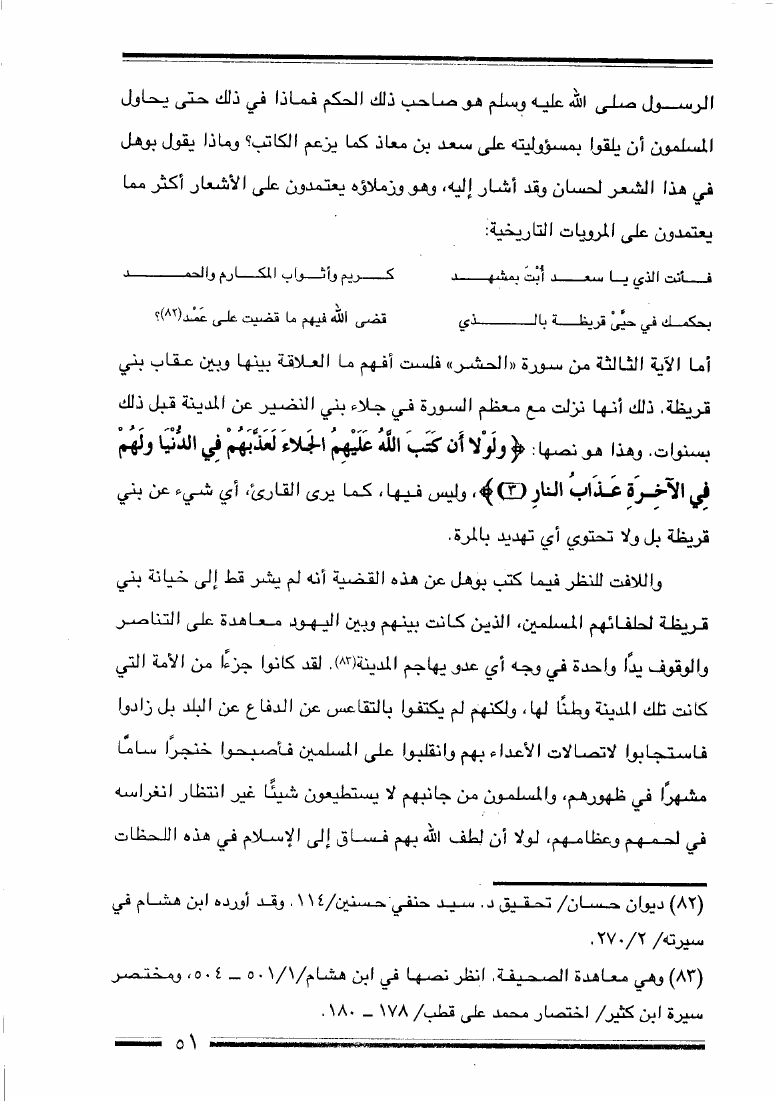 الرسول صلى الله عليه وسلم هو صاحب ذلك الحكم فماذا في ذلك حتى يحاول
المسلمون أن يلقوا بمسؤوليته على سعد بن معاذ كما يزعم الكاتب؟ وماذا يقول بوهل
في هذا الشعر لحسان وقد أشار إليه، وهو وزملاؤه يعتمدون على الأشعار أكثر مما
يعتمدون على المرويات التاريخية:
فأنت الذي يا سعد أُبْتَ بمشهد كريم وأثواب المكارم والحمد
بحكمك في حيَّيْ قريظة بالذي قضى الله فيهم ما قضيت على عَمْد(٨٢)؟
أما الآية الثالثة من سورة «الحشر» فلست أفهم ما العلاقة بينها وبين عقاب بني
قريظة. ذلك أنها نزلت مع معظم السورة في جلاء بني النضير عن المدينة قبل ذلك
بسنوات. وهذا هو نصها: ﴿ وَلَوْلا أَن كَتَبَ اللَّهُ عَلَيْهِمُ الجَلاءَ لَعَذَّبَهُمْ فِي الدُّنْيَا وَلَهُمْ
فِي الآخِرَةِ عَذَابُ النارِ (٣)﴾، وليس فيها، كما يرى القارئ، أي شيء عن بني
قريظة بل ولا تحتوي أي تهديد بالمرة.
واللافت للنظر فيما كتب بوهل عن هذه القضية أنه لم يشر قط إلى خيانة بني
قريظة لحلفائهم المسلمين، الذين كانت بينهم وبين اليهود معاهدة على التناصر
والوقوف يدًا واحدة في وجه أي عدو يهاجم المدينة(٨٣). لقد كانوا جزءًا من الأمة التي
كانت تلك المدينة وطنًا لها، ولكنهم لم يكتفوا بالتقاعس عن الدفاع عن البلد بل زادوا
فاستجابوا لاتصالات الأعداء بهم وانقلبوا على المسلمين فأصبحوا خنجرًا سامًّا
مشهرًا في ظهورهم، والمسلمون من جانبهم لا يستطيعون شيئًا غير انتظار انغراسه
في لحمهم وعظامهم، لولا أن لطف الله بهم فساق إلى الإسلام في هذه اللحظات
(٨٢) ديوان حسان/ تحقيق د. سيد حنفي حسنين/١١٤. وقد أورده ابن هشام في
سيرته/ ٢/ ٢٧٠.
(٨٣) وهي معاهدة الصحيفة. انظر نصها في ابن هشام/١/ ٥٠١ – ٥٠٤، ومختصر
سيرة ابن كثير/ اختصار محمد على قطب/ ١٧٨ – ١٨٠.
٥١